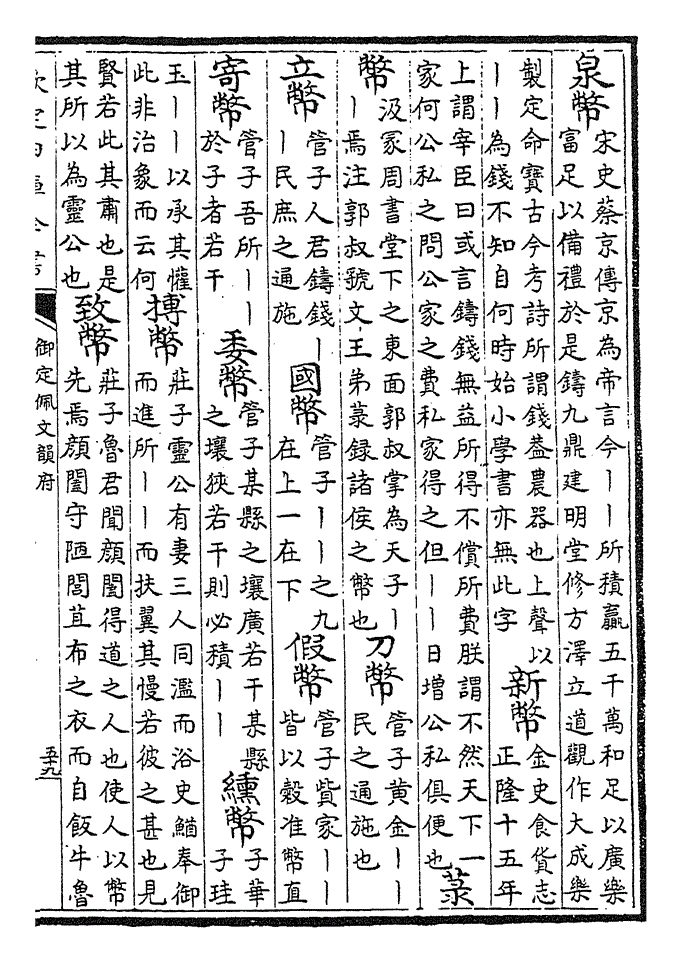 泉幣
宋史蔡京傳京為帝言今丨丨所積贏五千萬和足以廣樂
富足以備禮於是鑄九鼎建明堂修方澤立道觀作大成樂
製定命寶古今考詩所謂錢葢農器也上聲以
丨丨為錢不知自何時始小學書亦無此字
新幣
金史食貨志
正隆十五年
上謂宰臣曰或言鑄錢無益所得不償所費朕謂不然天下一
家何公私之問公家之費私家得之但丨丨日增公私俱便也
菉
幣
汲冡周書堂下之東面郭叔掌為天子丨
丨焉注郭叔虢文王弟菉録諸侯之幣也
刀幣
管子黄金丨丨
民之通施也
立幣
管子人君鑄錢丨
丨民庶之通施
國幣
管子丨丨之九
在上一在下
假幣
管子貲家丨丨
皆以穀准幣直
寄幣
管子吾所丨丨
於子者若干
委幣
管子某縣之壤廣若干某縣
之壤狹若干則必積丨丨
纁幣
子華
子珪
玉丨丨以承其懽
此非治象而云何
搏幣
莊子靈公有妻三人同濫而浴史鰌奉御
而進所丨丨而扶翼其慢若彼之甚也見
賢若此其肅也是
其所以為靈公也
致幣
莊子魯君聞顔闔得道之人也使人以幣
先焉顔闔守陋閭苴布之衣而自飯牛魯
欽定四庫全書
御定佩文韻府
五十九